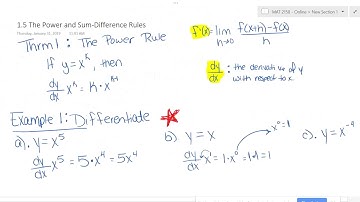 MAT 2150 - Online > New Section 1
1.5 The Power and Sum-Difference Rules
Thursday, January 11, 2018 11:07 AM
Thrm 1 : The Power Rule
If y = x^k, then
dy/dx x^k = k·x^(k-1)
f'(x) = lim h→0 f(x+h)-f(x)/h
dy/dx : the derivative of y
with respect to x.
Example 1: Differentiate
a). y = x^5
dy/dx x^5 = 5·x^4 = 5x^4
b) y = x
x^0 = 1
dy/dx x^1 = 1·x^0 = 1·1 = 1
c). y = x^-4